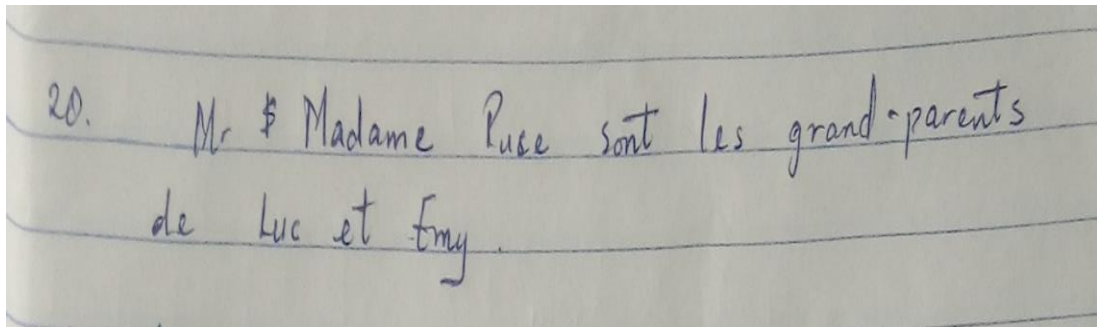 20. Mr $ Madame Puce sont les grand-parents
de Luc et Emy.